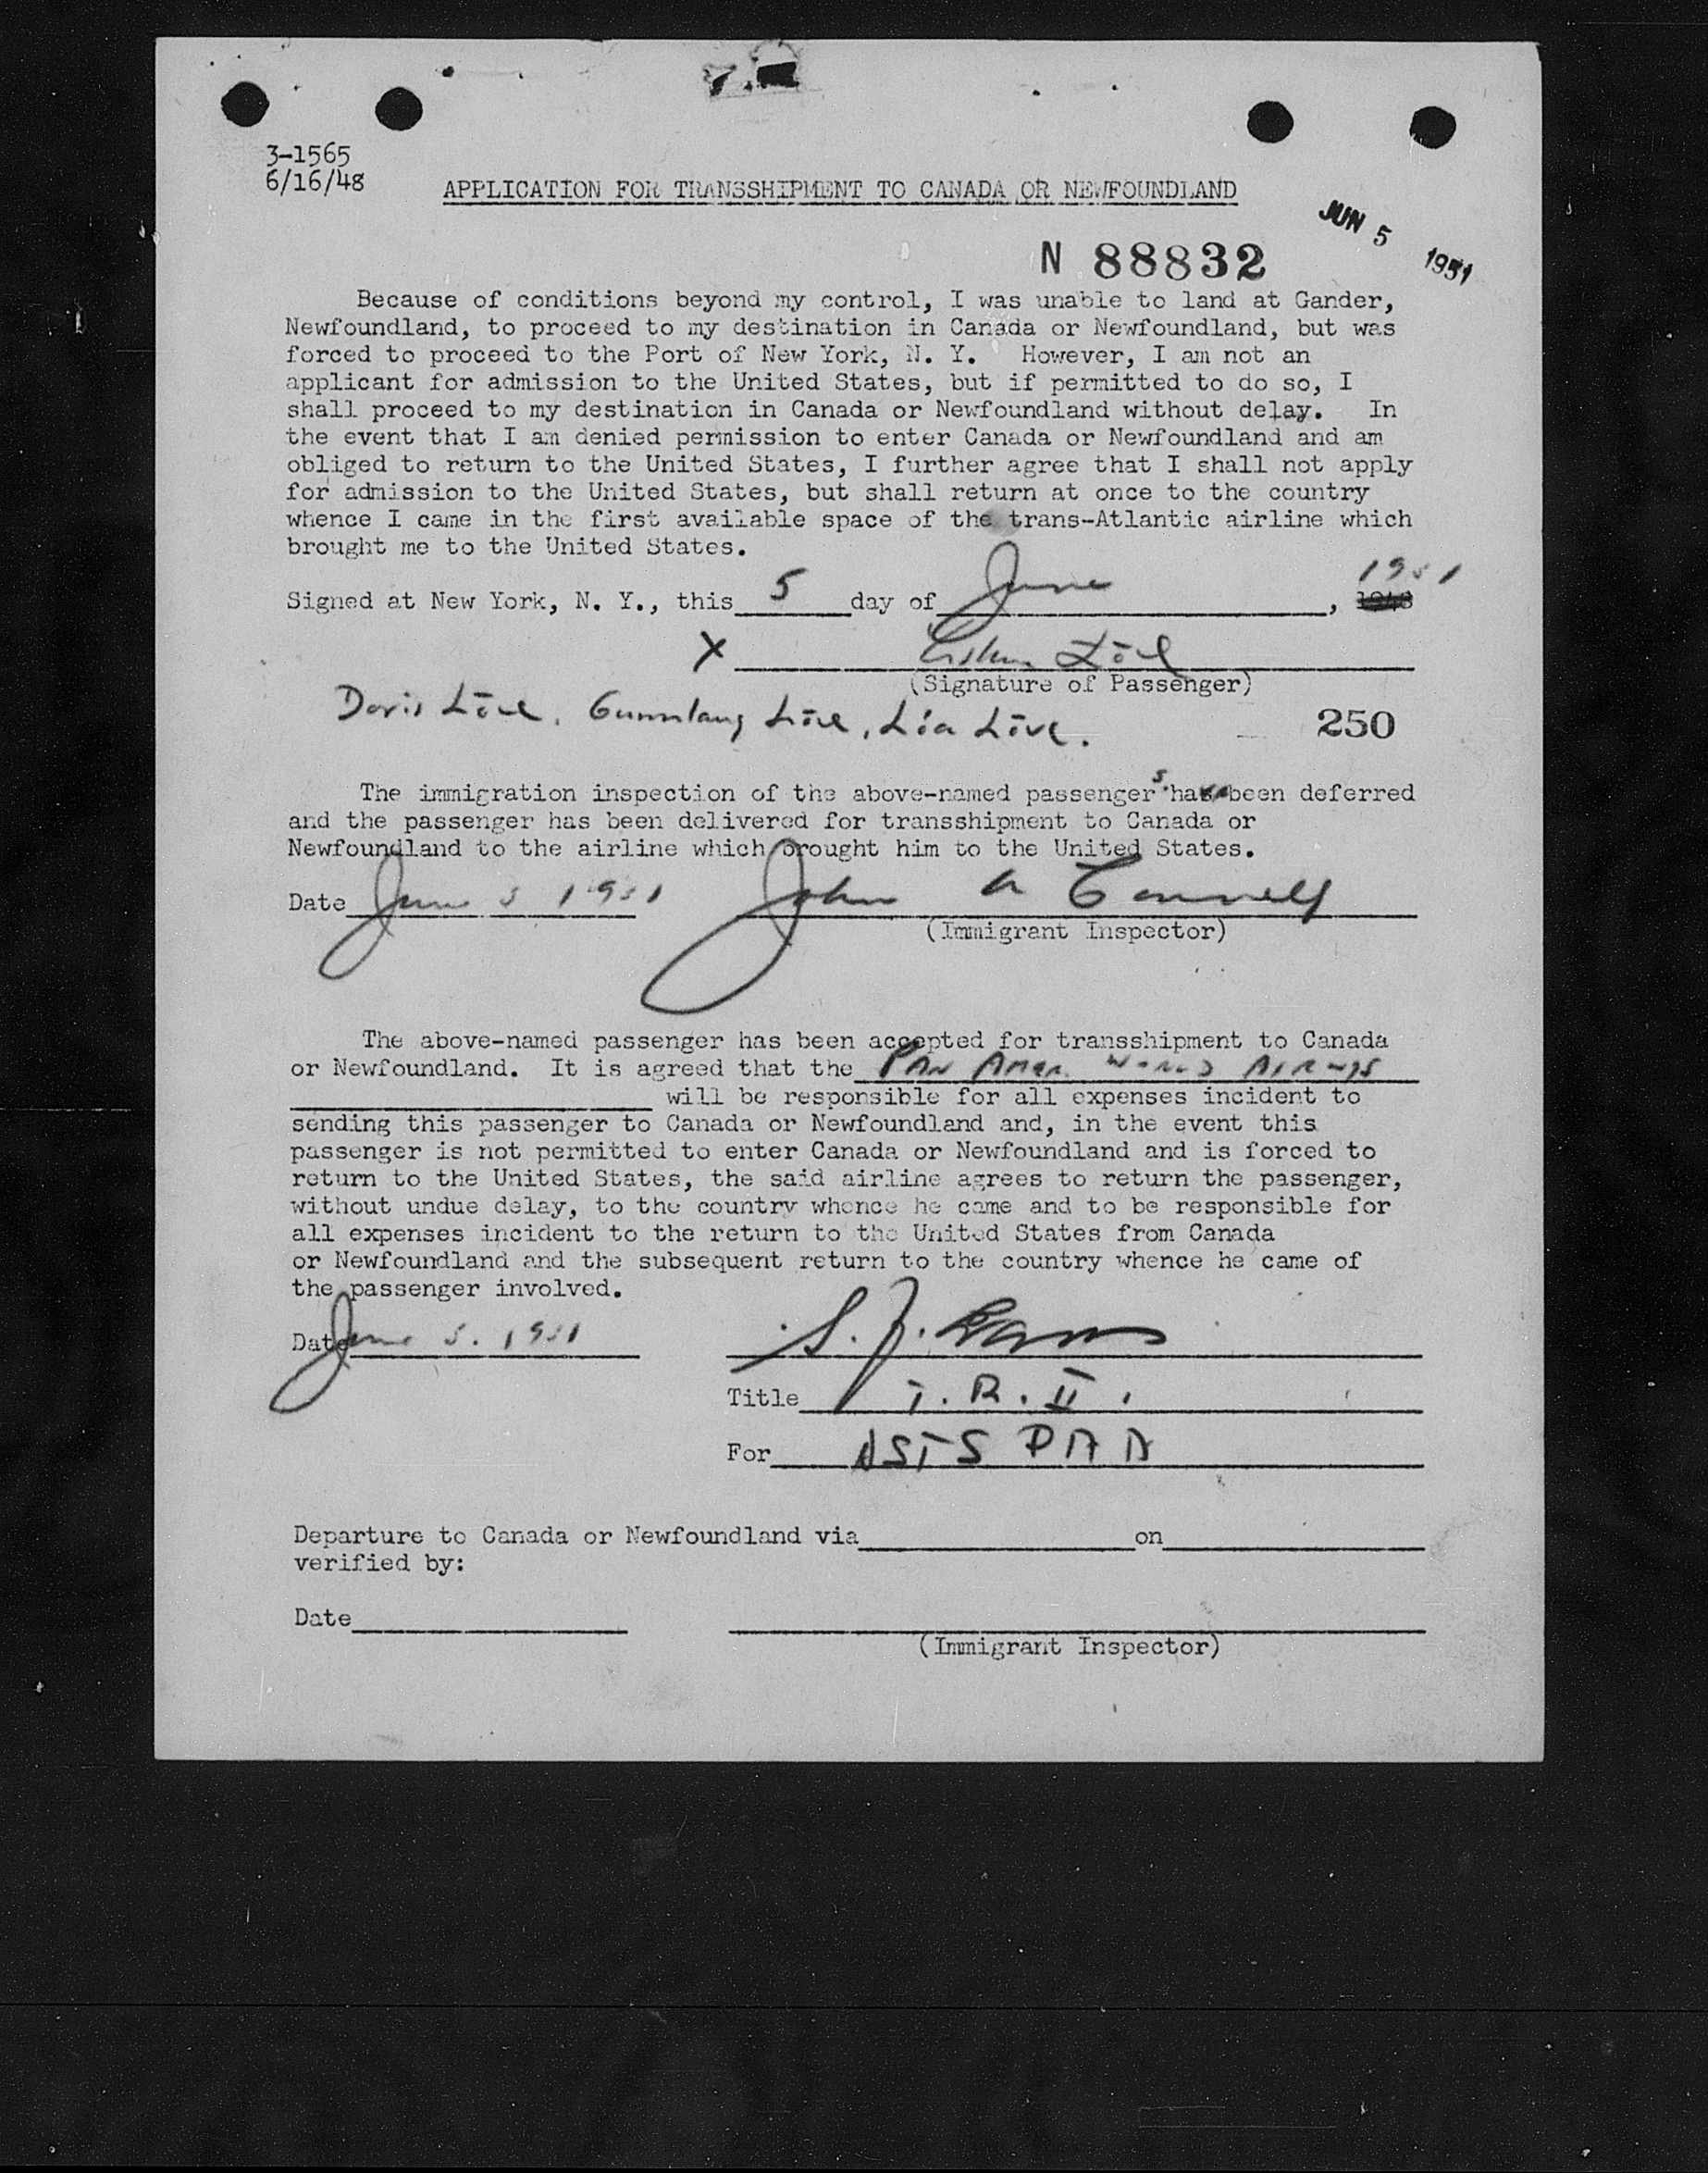 3-1565
6/16/48
APPLICATION FOR TRANSSHIPMENT TO CANADA OR NEWFOUNDLAND
JUN 5 1951
N 88832
Because of conditions beyond my control, I was unable to land at Gander,
Newfoundland, to proceed to my destination in Canada or Newfoundland, but was
forced to proceed to the Port of New York, N. Y. However, I am not an
applicant for admission to the United States, but if permitted to do so, I
shall proceed to my destination in Canada or Newfoundland without delay. In
the event that I am denied permission to enter Canada or Newfoundland and am
obliged to return to the United States, I further agree that I shall not apply
for admission to the United States, but shall return at once to the country
whence I came in the first available space of the trans-Atlantic airline which
brought me to the United States.
1951
Signed at New York, N. Y., this 5 day of June, 1948
X Löve
(Signature of Passenger)
Doris Löve, Gunnlaug Löve, Lóa Löve.
250
The immigration inspection of the above-named passengers has been deferred
and the passenger has been delivered for transshipment to Canada or
Newfoundland to the airline which brought him to the United States.
Date June 5 1951 John A Connell
(Immigrant Inspector)
The above-named passenger has been accepted for transshipment to Canada
or Newfoundland. It is agreed that the PAN AMER. WORLD AIRWYS
will be responsible for all expenses incident to
sending this passenger to Canada or Newfoundland and, in the event this
passenger is not permitted to enter Canada or Newfoundland and is forced to
return to the United States, the said airline agrees to return the passenger,
without undue delay, to the country whence he came and to be responsible for
all expenses incident to the return to the United States from Canada
or Newfoundland and the subsequent return to the country whence he came of
the passenger involved.
Date June 5. 1951 S. J.
Title T. R. II.
For ASTS PAA
Departure to Canada or Newfoundland via on
verified by:
Date
(Immigrant Inspector)